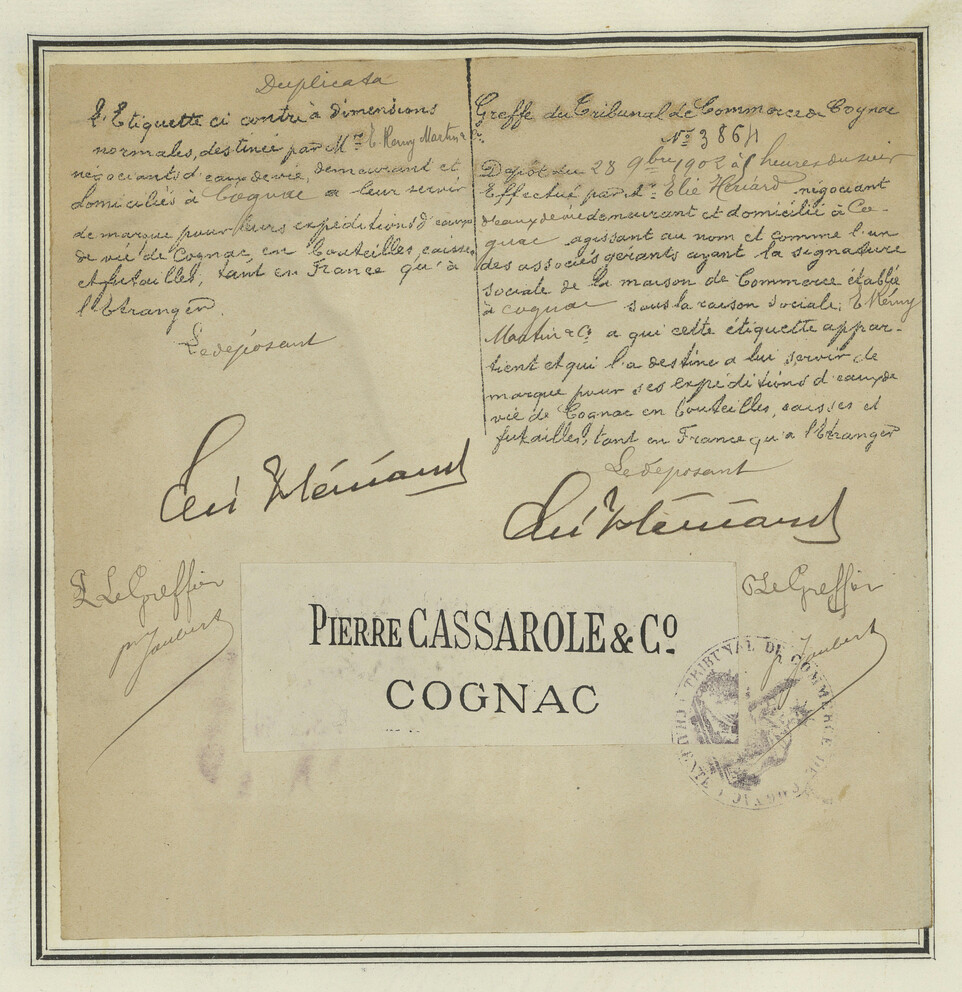 Duplicata
L'Etiquette ci contre à dimensions
normales, destinée par Mrs E. Remy Martin &
négociants d'eaux de vie, demeurant et
domiciliés à Cognac a leur servir
de marque pour leurs expéditions d'eaux
de vie de Cognac, en bouteilles, caisses
et futailles, tant en France qu'à
l'Etranger.
Le déposant
Greffe du Tribunal de Commerce de Cognac
No 3864
Dépôt du 28 9bre 1902 à heures du soir
Effectué par Mr Elie Hériard négociant
d'eaux de vie demeurant et domicilié à Co-
gnac agissant au nom et comme l'un
des associés gérants ayant la signature
sociale de la maison de Commerce établie
à Cognac sous la raison sociale; E Rémy
Martin & Co a qui cette étiquette appar-
tient et qui l'a destine a lui servir de
marque pour ses expéditions d'eaux de
vie de Cognac en bouteilles, caisses et
futailles, tant en France qu'a l'Etranger
Le déposant
Hériard
Hériard
Le Greffier
Jaubert
PIERRE CASSAROLE & CO
COGNAC
Le Greffier
p Jaubert
TRIBUNAL DE COMMERCE DE COGNAC CHARENTE